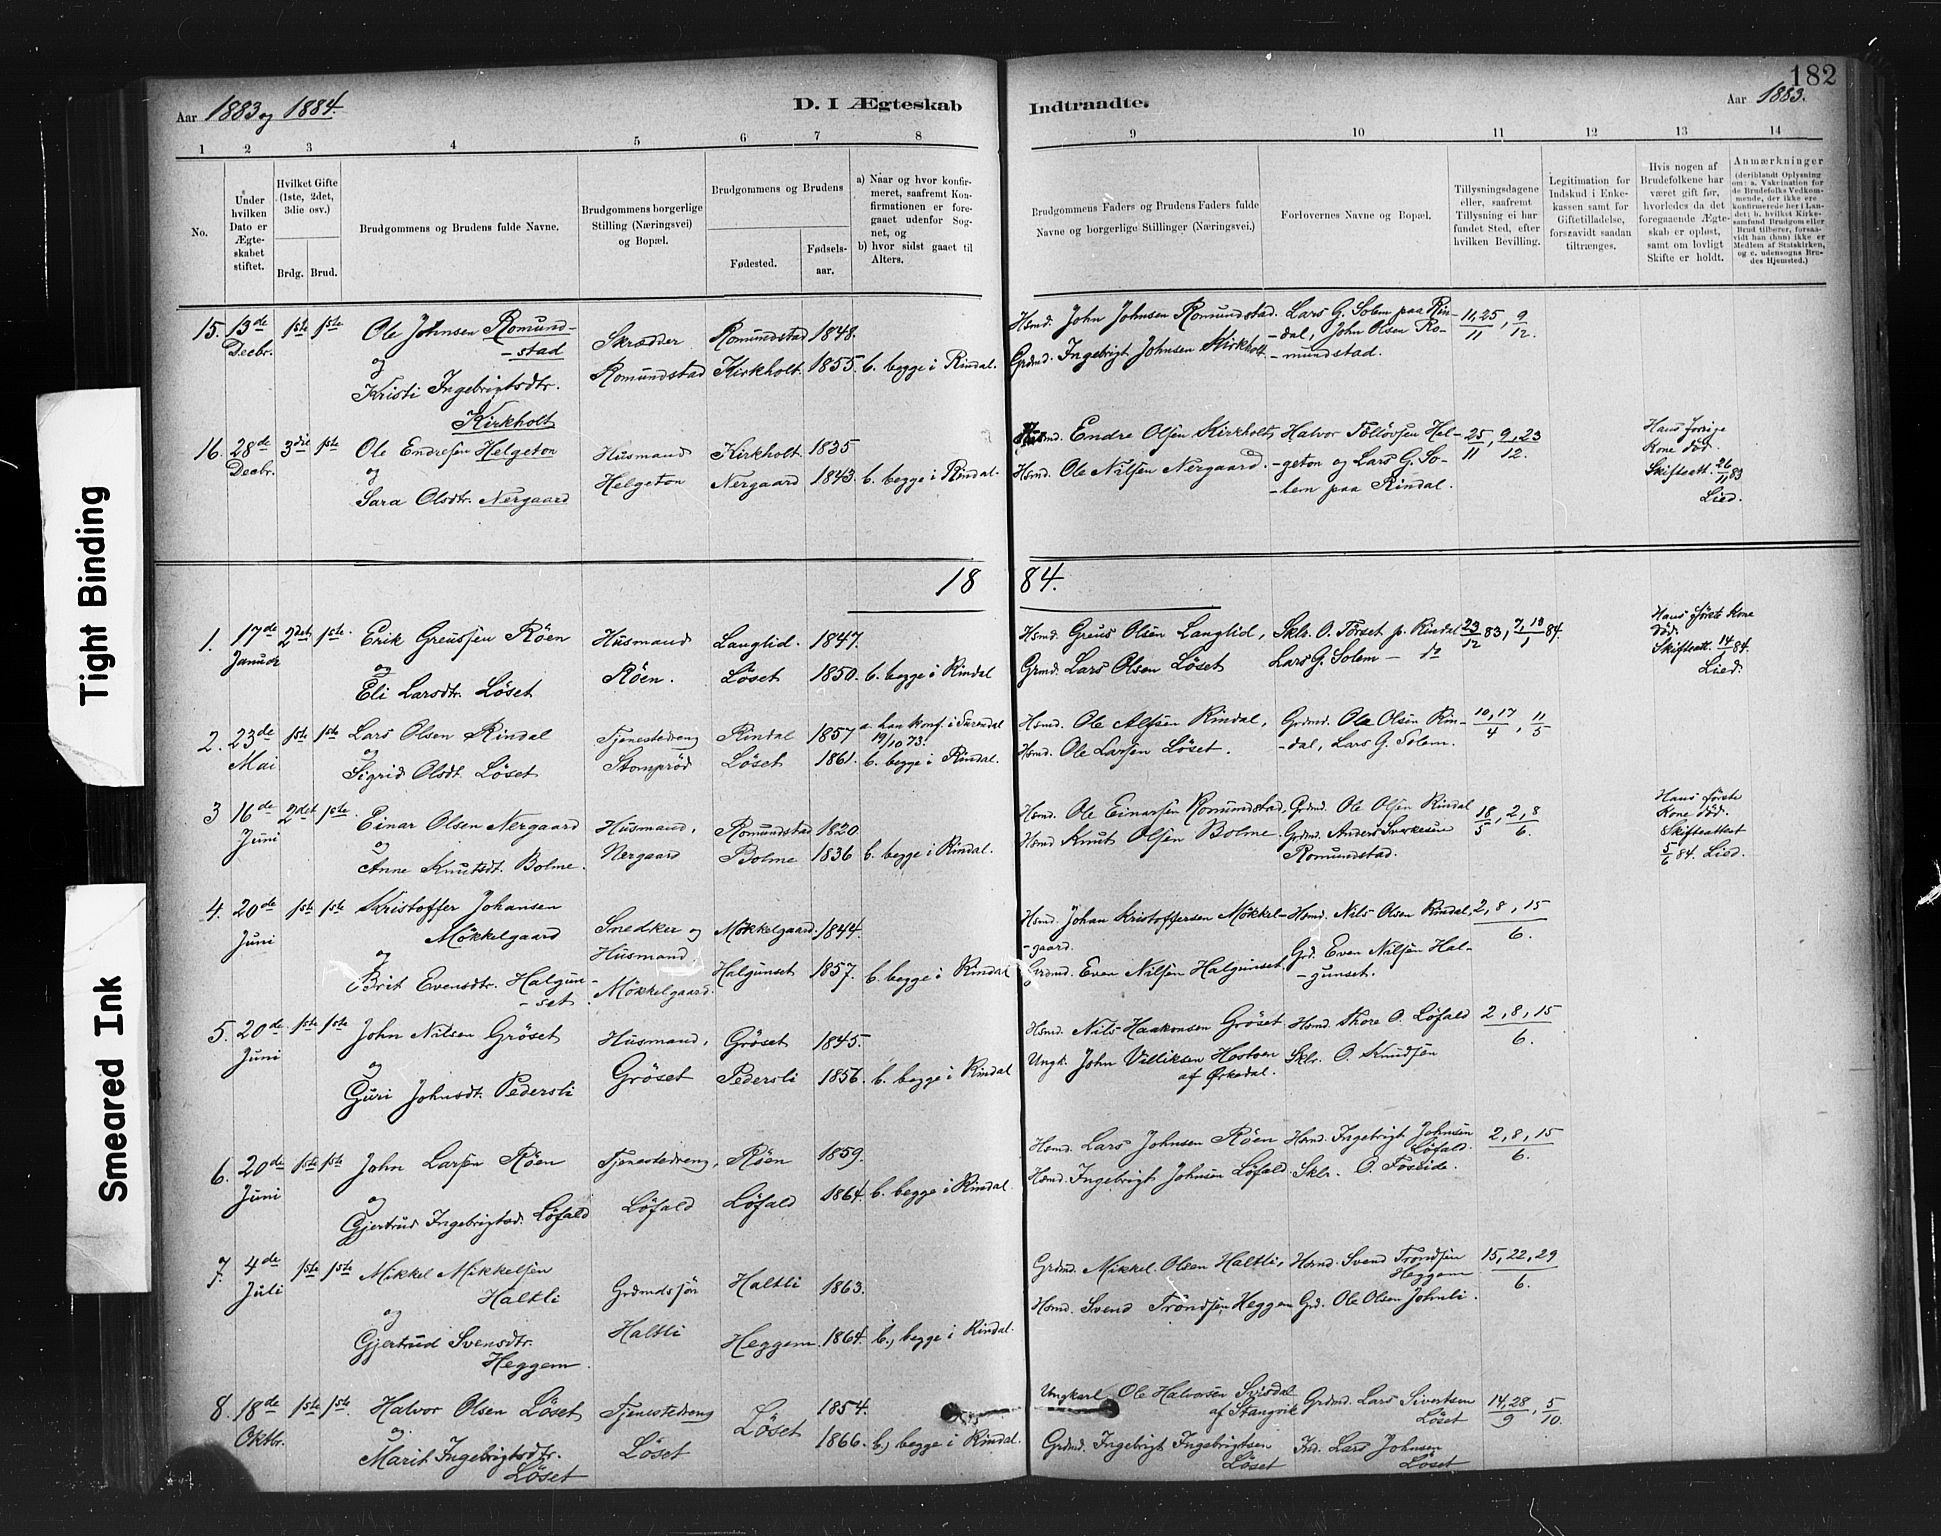 182
Aar 1883 og 1884.
D. I Ægteskab
Indtraadte.
Aar 1883.
1 2 3 4 5 6 7 8 9 10 11 12 13 14
No.
Under hvilken Dato er Ægteskabet stiftet.
Hvilket Gifte (1ste, 2det, 3die osv.)
Brdg. Brud.
Brudgommens og Brudens fulde Navne.
Brudgommens borgerlige Stilling (Næringsvei) og Bopæl.
Brudgommens og Brudens
Fødested.
Fødselsaar.
a) Naar og hvor konfirmeret, saafremt Konfirmationen er foregaaet udenfor Sognet, og
b) hvor sidst gaaet til Alters.
Brudgommens Faders og Brudens Faders fulde Navne og borgerlige Stillinger (Næringsvei.)
Forlovernes Navne og Bopæl.
Tillysningsdagene eller, saafremt Tillysning ei har fundet Sted, efter hvilken Bevilling.
Legitimation for Indskud i Enkekassen samt for Giftetilladelse, forsaavidt saadan tiltrænges.
Hvis nogen af Brudefolkene har været gift før, hvorledes da det foregaaende Ægteskab er opløst, samt om lovligt Skifte er holdt.
Anmærkninger
15. 13de Decbr. 1ste 1ste
Ole Johnsen Romundstad
og
Kristi Ingebrigtsdtr. Kirkholt
Skrædder Romundstad
Romundstad 1848.
Kirkholt. 1855. b. begge i Rindal.
Hsmd. John Johnsen Romundstad.
Grdmd. Ingebrigt Johnsen Kirkholt
Lars G. Solem paa Rindal, John Olsen Romundstad.
11, 25/11, 9/12.
16. 28de Decbr. 3die 1ste
Ole Endresen Helgeton
og
Sara Olsdtr. Nergaard
Husmand Helgeton
Kirkholt 1835
Nergaard 1843. b. begge i Rindal.
Hsmd. Endre Olsen Kirkholt,
Hsmd. Ole Nilsen Nergaard.
Halvor Tollövsen Helgeton og Lars G. Solem paa Rindal.
25/11, 9, 23/12.
Hans forrige Kone död. Skifteatt. 26/11 83 Lied.
1884.
1. 17de Januar 2det 1ste.
Erik Greussen Röen
og
Eli Larsdtr. Löset
Husmand Röen.
Langlid. 1847.
Löset 1850. b. begge i Rindal
Hsmd. Greus Olsen Langlid,
Grmd. Lars Olsen Löset
Sklr. O. Törset p. Rindal
Lars G. Solem — do
23/12 83,
Hans förste Kone död. Skifteatt. 14/1 84. Lied.
2. 23de Mai 1ste 1ste
Lars Olsen Rindal
og
Sigrid Olsdt. Löset
Tjenestedreng Stomprød
Rindal 1857 a. han konf. i Surendal 19/10 73.
Löset 1861. b. begge i Rindal.
Hsmd. Ole Alfsen Rindal,
Hsmd. Ole Larsen Löset.
Grdmd. Ole Olsen Rindal, Lars G. Solem.
10, 17/4, 11/5
3 16de Juni 2det 1ste.
Einar Olsen Nergaard
og
Anne Knutsdt. Bolme.
Husmand, Nergaard
Romundstad 1820
Bolme 1836 b. begge i Rindal.
Hsmd. Ole Einarsen Romundstad,
Hsmd Knut Olsen Bolme.
Grdmd. Ole Olsen Rindal
Grdmd. Anders Sverkesen Romundstad.
18/5, 2, 8/6.
Hans förste Kone död. Skifteattest 5/6 84. Lied.
4. 20de Juni 1ste 1ste
Kristoffer Johansen Mökkelgaard
og
Brit Evensdtr. Halgunset
Snedker og Husmand Mökkelgaard.
Mökkelgaard. 1844.
Halgunset 1857. b. begge i Rindal
Hsmd. Johan Kristoffersen Mökkelgaard.
Grdmd. Even Nilsen Halgunset.
Hsmd. Nils Olsen Rindal,
Grd. Even Nilsen Halgunset.
2, 8, 15/6.
5. 20de Juni 1ste 1ste
John Nilsen Gröset
og
Guri Johnsdt. Pedersli
Husmand, Gröset
Gröset 1845.
Pedersli 1856. b. begge i Rindal
Hsmd. Nils Haakonsen Gröset
Ungk. John Villiksen Hostven af Ørkedal.
Hsmd. Thore O. Löfald
Sklr. O. Knudsen
2, 8, 15/6.
6. 20de Juni 1ste 1ste
John Larsen Röen
og
Gjertrud Ingebrigtsd. Löfald
Tjenestedreng, Löfald
Röen 1859.
Löfald 1864. b. begge i Rindal.
Hsmd. Lars Johnsen Röen
Hsmd. Ingebrigt Johnsen Löfald
Hsmd. Ingebrigt Johnsen Löfald.
Sklr. O. Foseide.
2, 8, 15/6.
7. 4de Juli 1ste 1ste
Mikkel Mikkelsen Haltli
og
Gjertrud Svensdtr. Heggem.
Grdmdssön Haltli
Haltli 1863.
Heggem. 1864. b., begge i Rindal.
Grdmd. Mikkel Olsen Haltli,
Hsmd. Svend Trondsen Heggem
Hsmd. Svend Trondsen Heggem
Grd. Ole Olsen Johnli.
15, 22, 29/6.
8. 18de Oktbr. 1ste 1ste.
Halvor Olsen Löset
og
Marit Ingebrigtsdtr. Löset
Tjenestedreng Löset
Löset 1854.
1866. b., begge i Rindal.
Ungkarl Ole Halvorsen Svisdal af Stangvik
Grdmd. Ingebrigt Ingebrigtsen Löset
Grdmd. Lars Sivertsen Löset
Ind. Lars Johnsen Löset
14, 28/9, 5/10.
Tight Binding
Smeared Ink